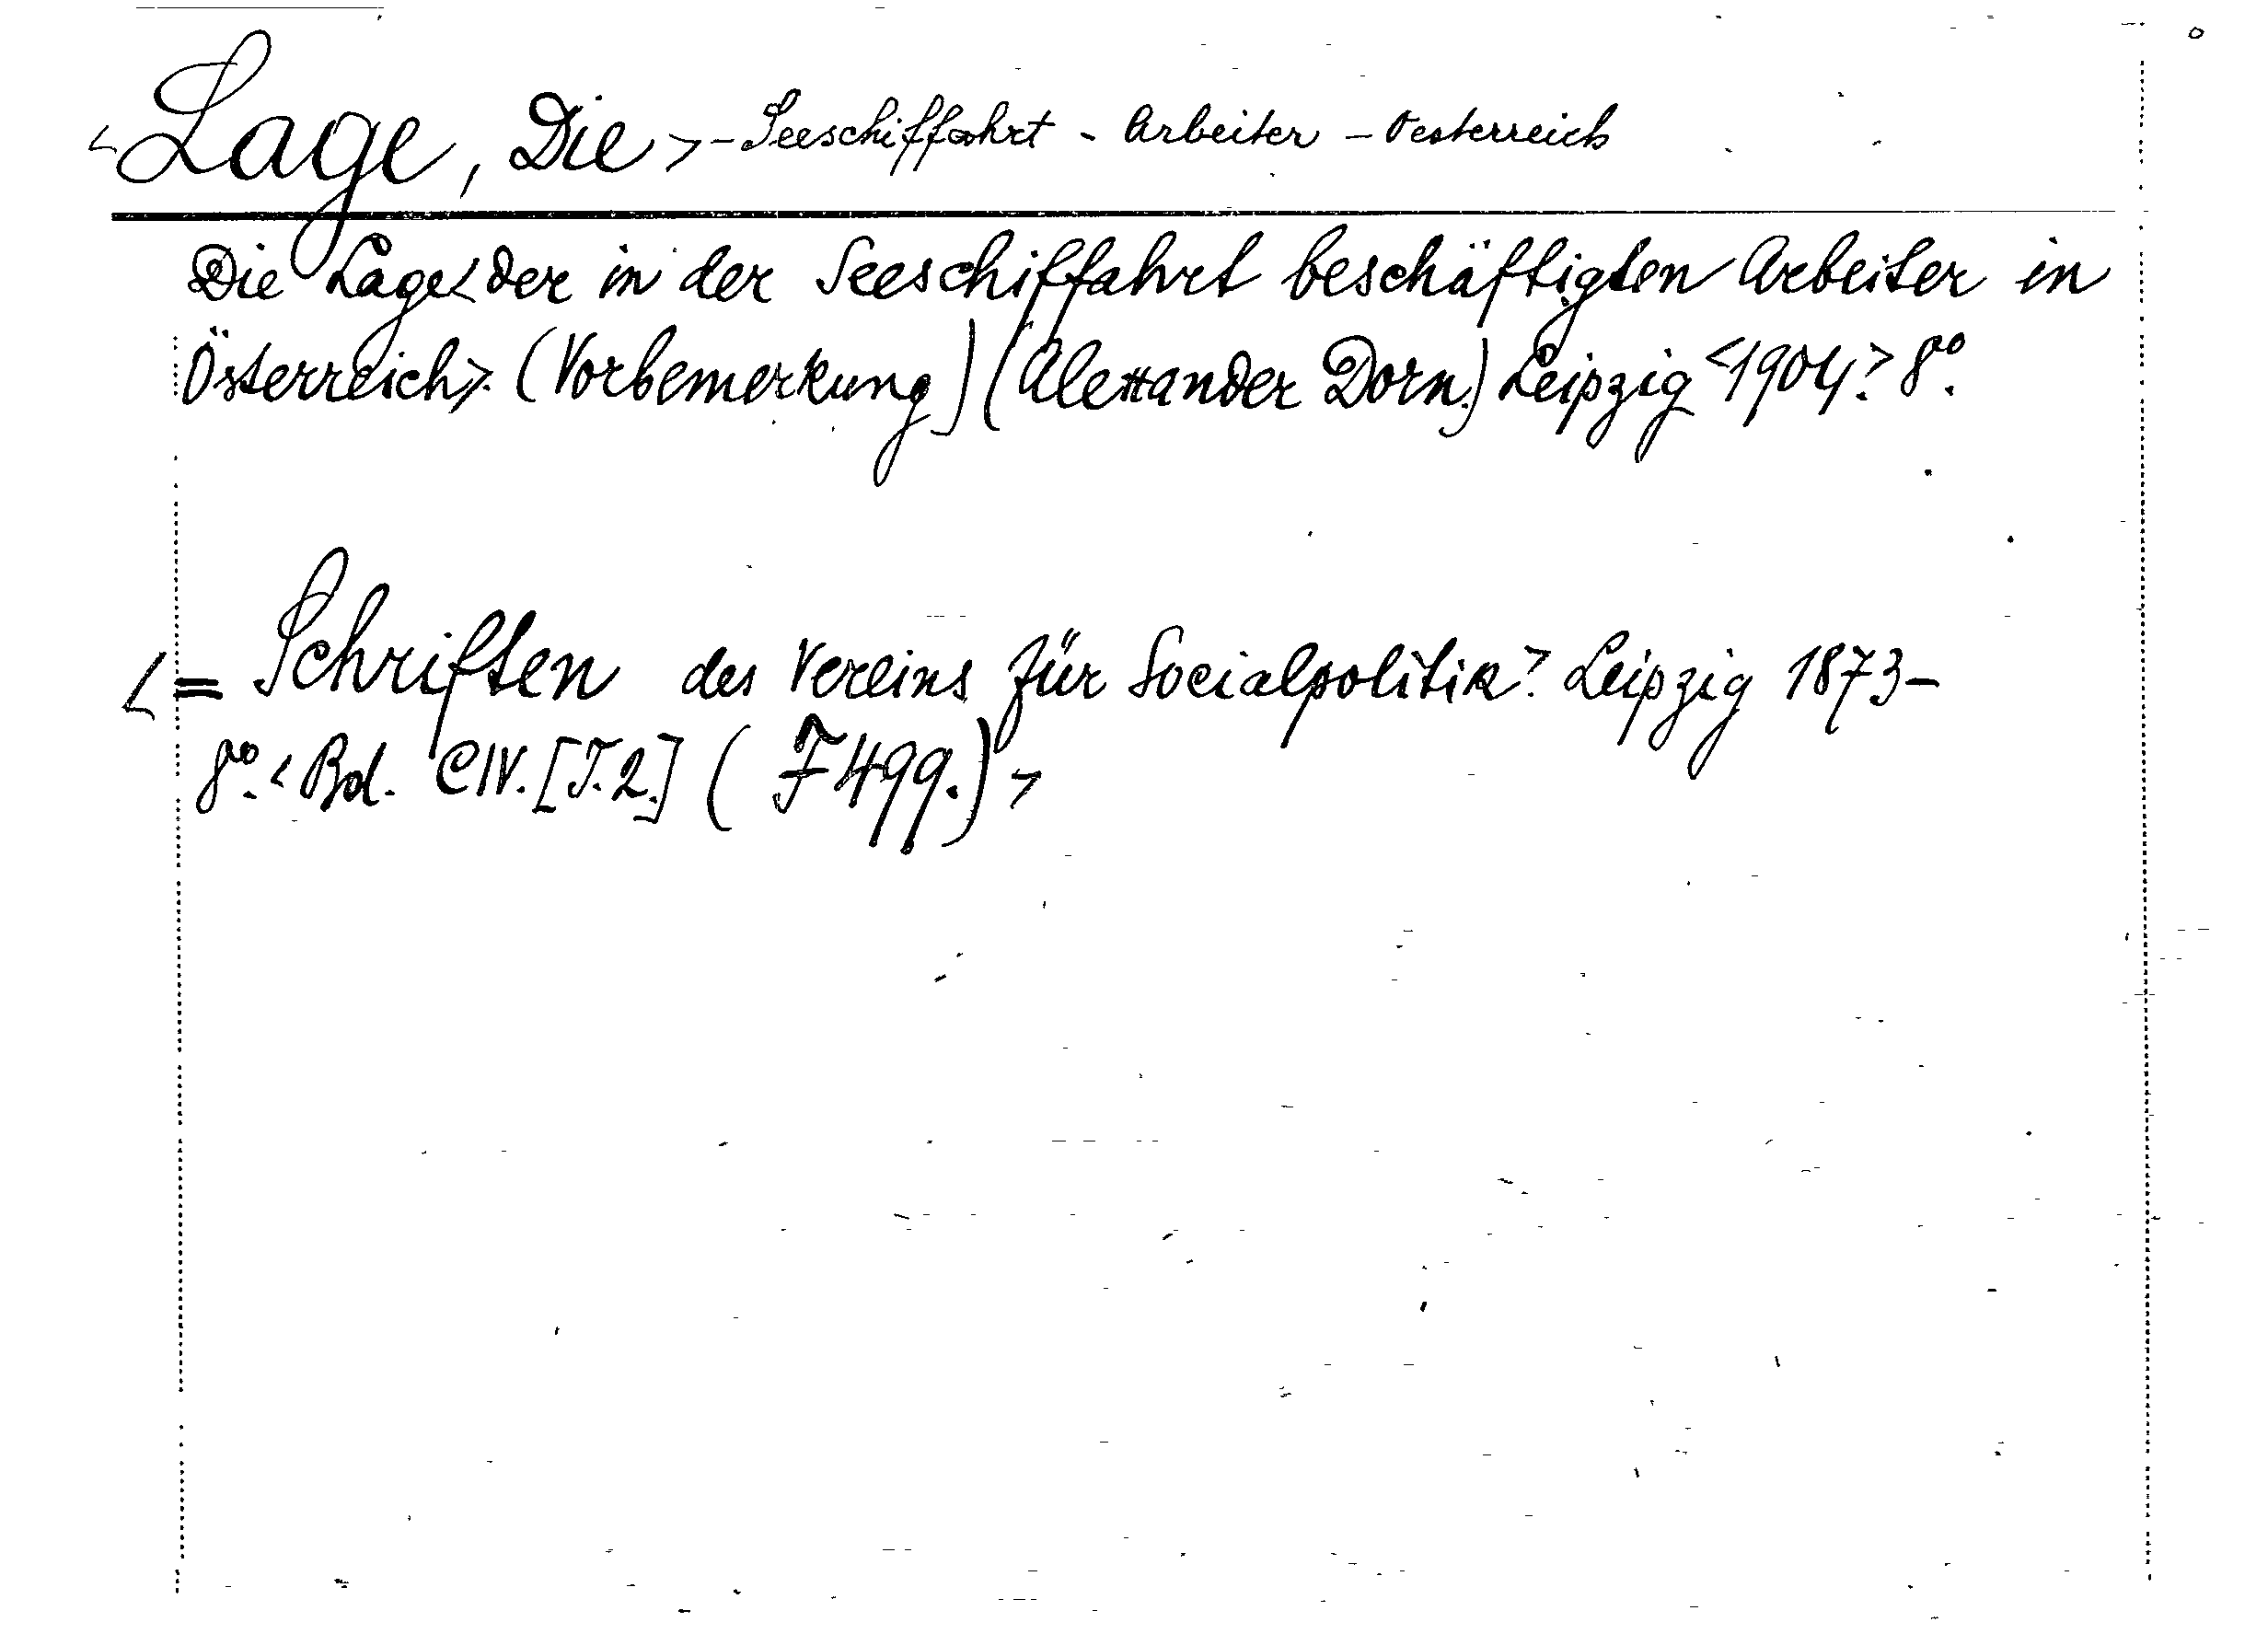 <Lage, Die> - Seeschiffahrt - Arbeiter - Oesterreich
Die Lage<der in der Seeschiffahrt beschäftigten Arbeiter in
Österreich>. (Vorbemerkung) (Alexander Dorn.) Leipzig <1904>. 8°.
<= Schriften des Vereins für Socialpolitik>. Leipzig 1873-
8°. <Bd. CIV. [T. 2.] (F 499.)>